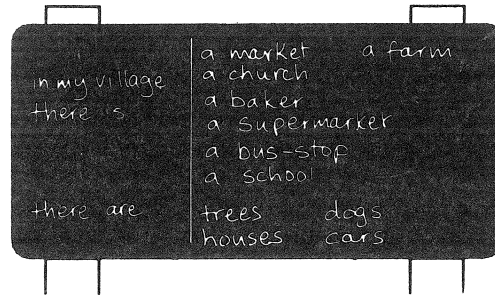 in my village
there is
there are
a market a farm
a church
a baker
a supermarket
a bus-stop
a school
trees dogs
houses cars